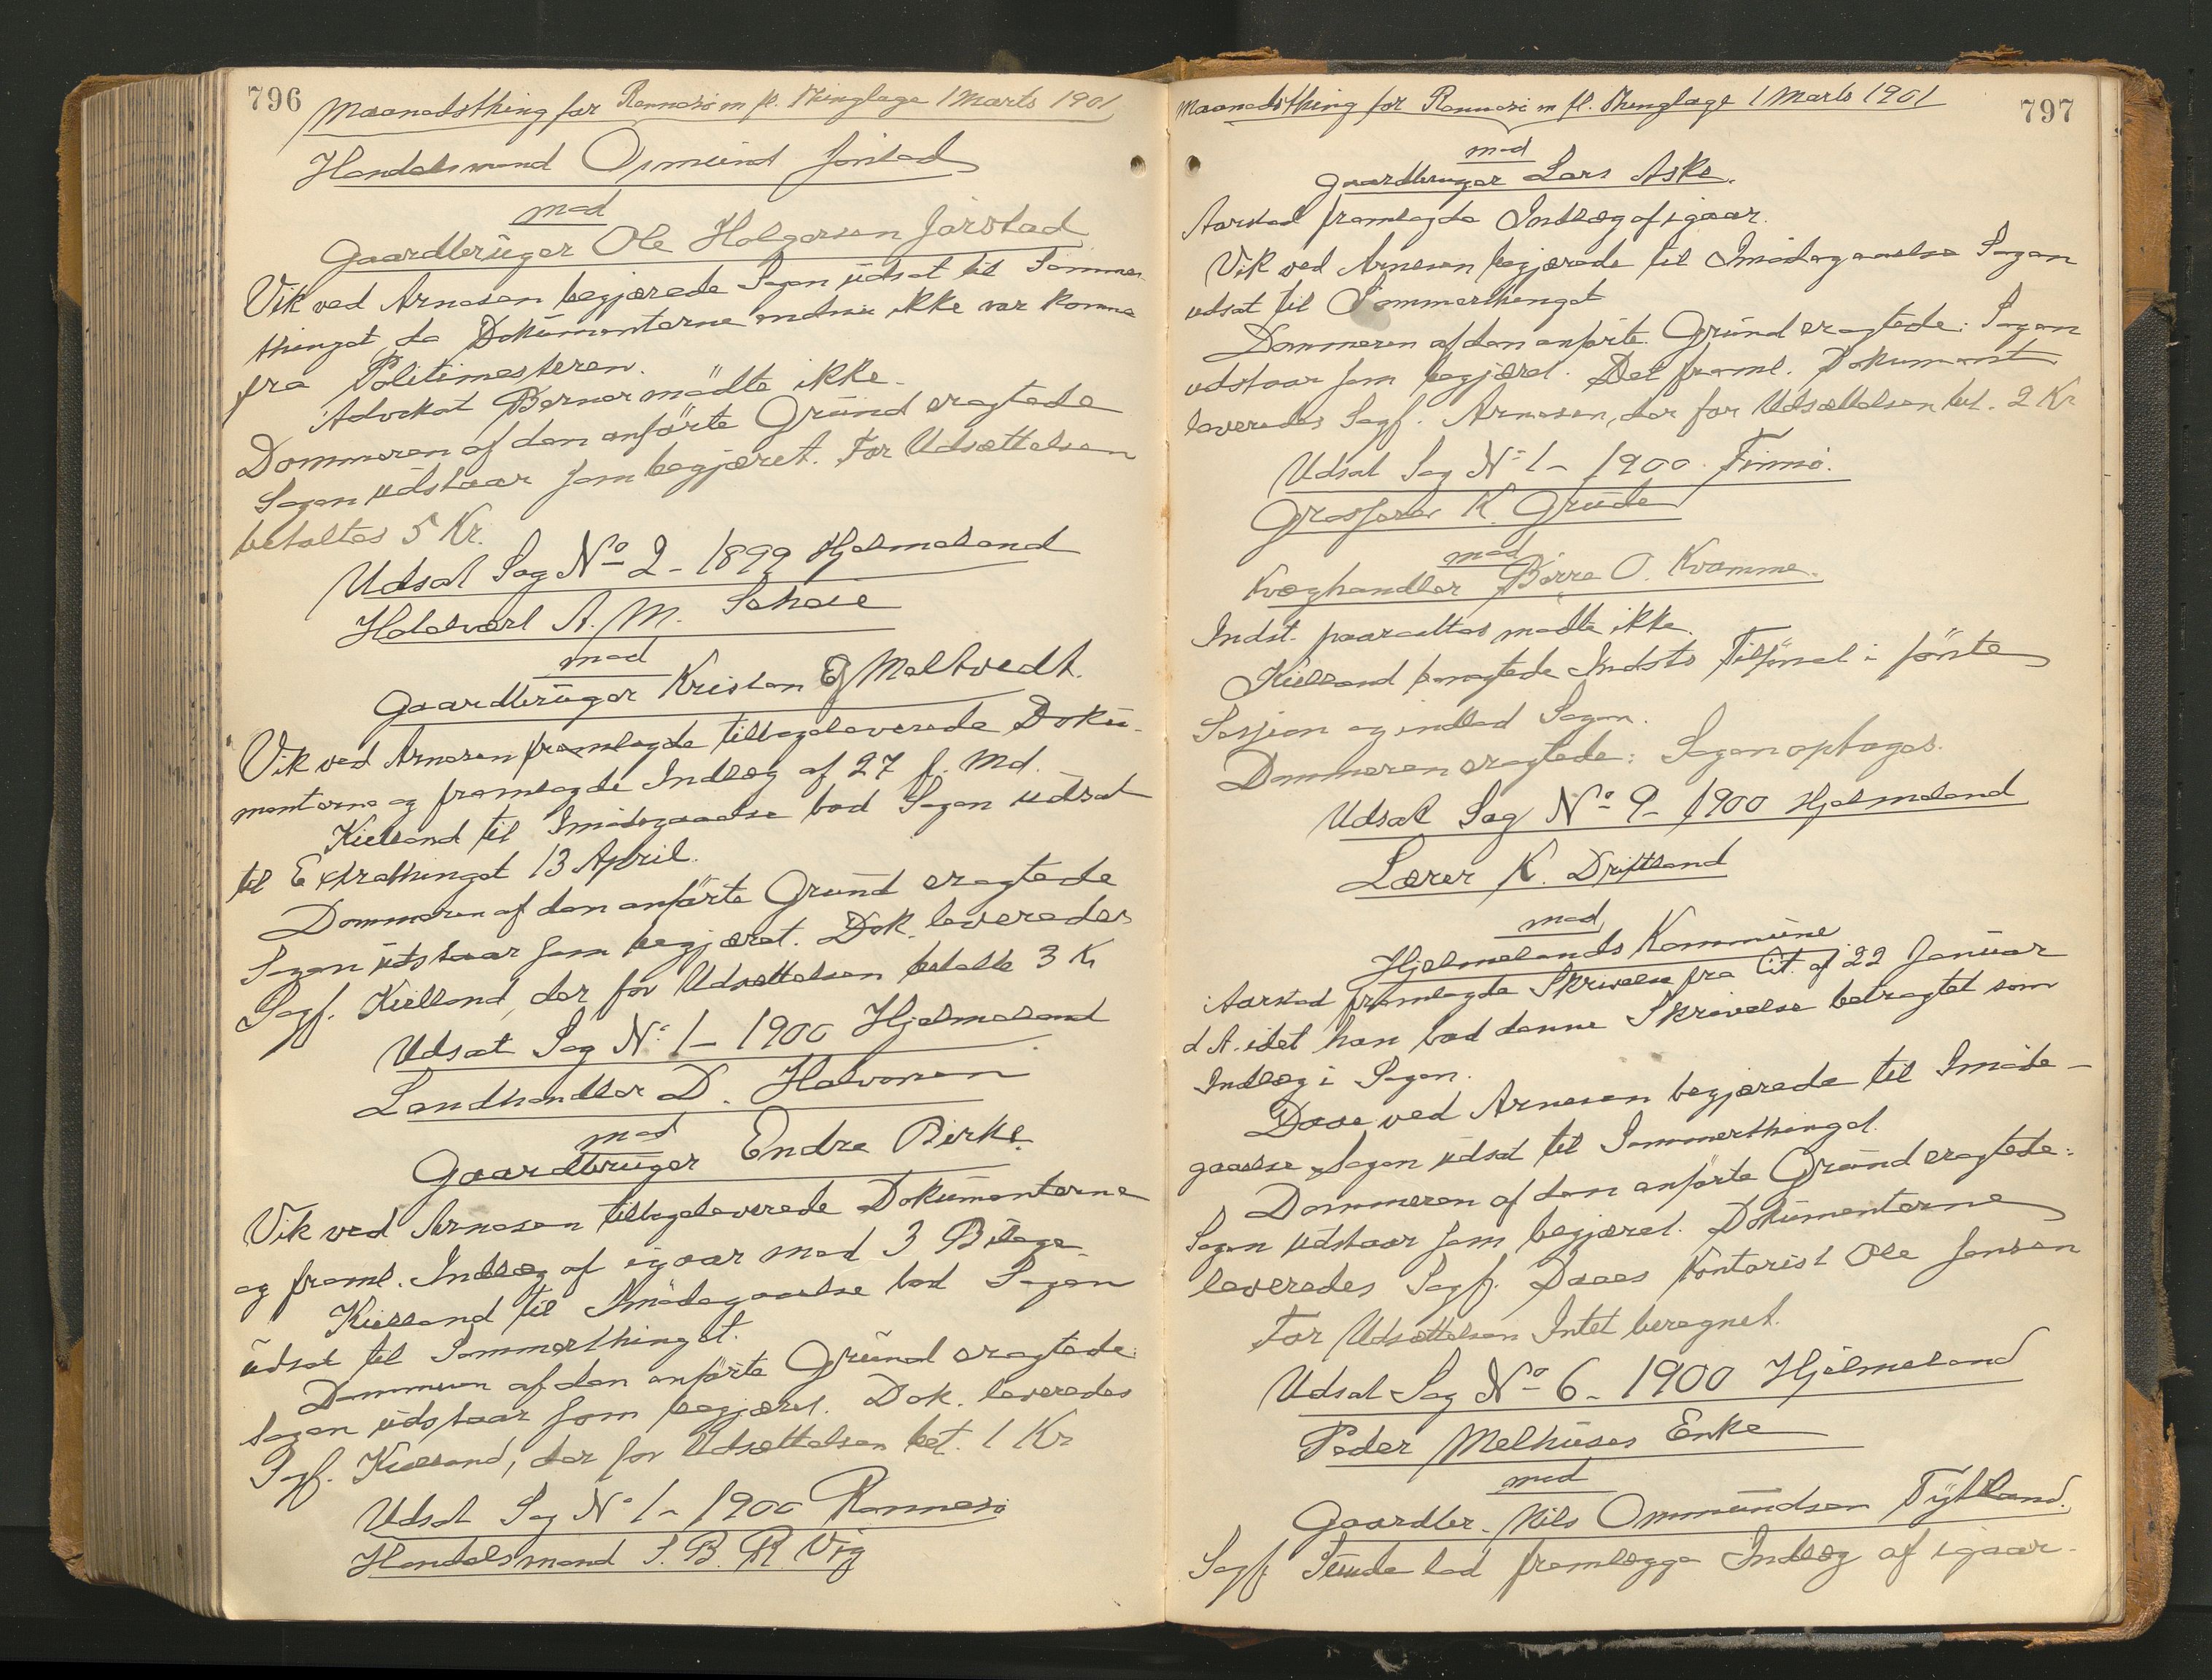 796
Maanedsthing for Rennesø m fl. Thinglage 1 Marts 1901
Handelsmand Osmund Jøsstad
mod
Gaardbruger Ole Holgersen Jørstad
Vik ved Arnesen begjærede Sagen udsat til Sommer
thinget, da Dokumenterne endnu ikke var komne
fra Politimesteren.
Advokat Berner mødte ikke.
Dommeren af den anførte Grund eragtede
Sagen udstaar som begjæret. For Udsættelsen
betaltes 5 Kr.
Udsat Sag No 2 - 1899 Hjelmeland
Halvard A. M. Schøie
mod
Gaardbruger Kristen E Meltvedt.
Vik ved Arnesen fremlagde tilbageleverede Doku-
menterne og fremlagde Indlæg af 27 f. Md.
Kielland til Imødegaaelse bad Sagen udsat
til Extrathinget 13 April.
Dommeren af den anførte Grund eragtede
Sagen udstaar som begjæret. Dok. leveredes
Sagf. Kielland, der for Udsættelsen betalte 3 Kr
Udsat Sag No 1 - 1900 Hjelmeland
Landhandler D. Halvorsen
mod
Gaardbruger Endre Birke.
Vik ved Arnesen tilbageleverede Dokumenterne
og freml. Indlæg af igaar med 3 Bilage.
Kielland til Imødegaaelse bad Sagen
udsat til Sommerthinget.
Dommeren af den anførte Grund eragtede:
Sagen udstaar som begjæret. Dok. leveredes
Sagf. Kielland, der for Udsættelsen bet. 1 Kr
Udsat Sag No 1 - 1900 Rennesø
Handelsmand S. B. R. Vig
Maanedsthing for Rennesø m fl. Thinglage 1 Marts 1901
797
mod
Gaardbruger Lars Aske.
Aarstad fremlagde Indlæg af igaar.
Vik ved Arnesen begjærede til Imødegaaelse Sagen
udsat til Sommerthinget
Dommeren af den anførte Grund eragtede: Sagen
udstaar som begjæret. Det freml. Dokument
leveredes Sagf. Arnesen, der for Udsættelsen bet. 2 Kr
Udsat Sag No 1 - 1900 Finnø.
Grosserer K. Grude
mod
Kvæghandler Børre O. Kvamme.
Indst. paaraabtes mødte ikke.
Kielland benegtede Indsts Tilførsel i første
Session og indlod Sagen.
Dommeren eragtede: Sagen optages.
Udsat Sag No 9 - 1900 Hjelmeland
Lærer K. Driftland
mod
Hjelmelands Kommune
Aarstad fremlagde Skrivelse fra Cit. af 22 Januar
d. A. idet han bad denne Skrivelse betragtet som
Indlæg i Sagen.
Daae ved Arnesen begjærede til Imøde-
gaaelse Sagen udsat til Sommerthinget.
Dommeren af den anførte Grund eragtede:
Sagen udstaar som begjæret. Dokumenterne
leveredes Sagf. Daaes Kontorist Ole Jensen
For Udsættelsen Intet beregnet.
Udsat Sag No 6 - 1900 Hjelmeland
Peder Melhuses Enke
mod
Gaardbr. Nils Ommundsen Tytland.
Sagf. Sunde lod fremlægge Indlæg af igaar.